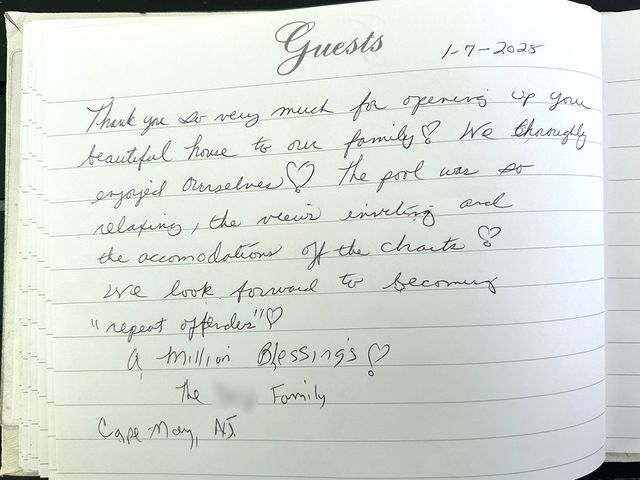 Guests
1-7-2025
Thank you so very much for opening up your
beautiful house to our family! We thoroughly
enjoyed ourselves! The pool was so
relaxing, the views inviting and
the accomodations off the charts!
We look forward to becoming
"repeat offender"
A Million Blessing's!
The Family
Cape May, NJ